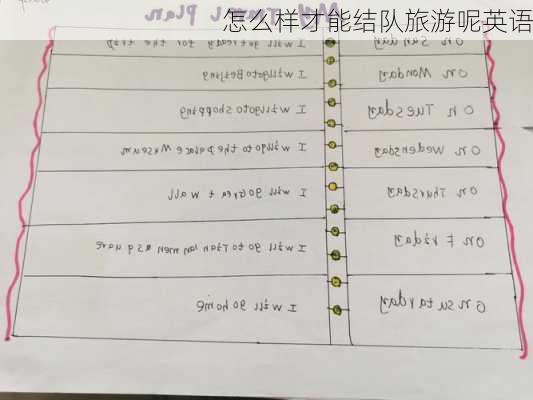 怎么样才能结队旅游呢英语
My Travel Plan
on Sunday I will got ready for the trip
on Monday I willgoto Beijing
on Tuesday I willgoto shopping
on wedensday I willgo to the palace Museum
on Thursday I will go Great Wall
on Friday I will go to Tian'anmen square
on saturday I will go home